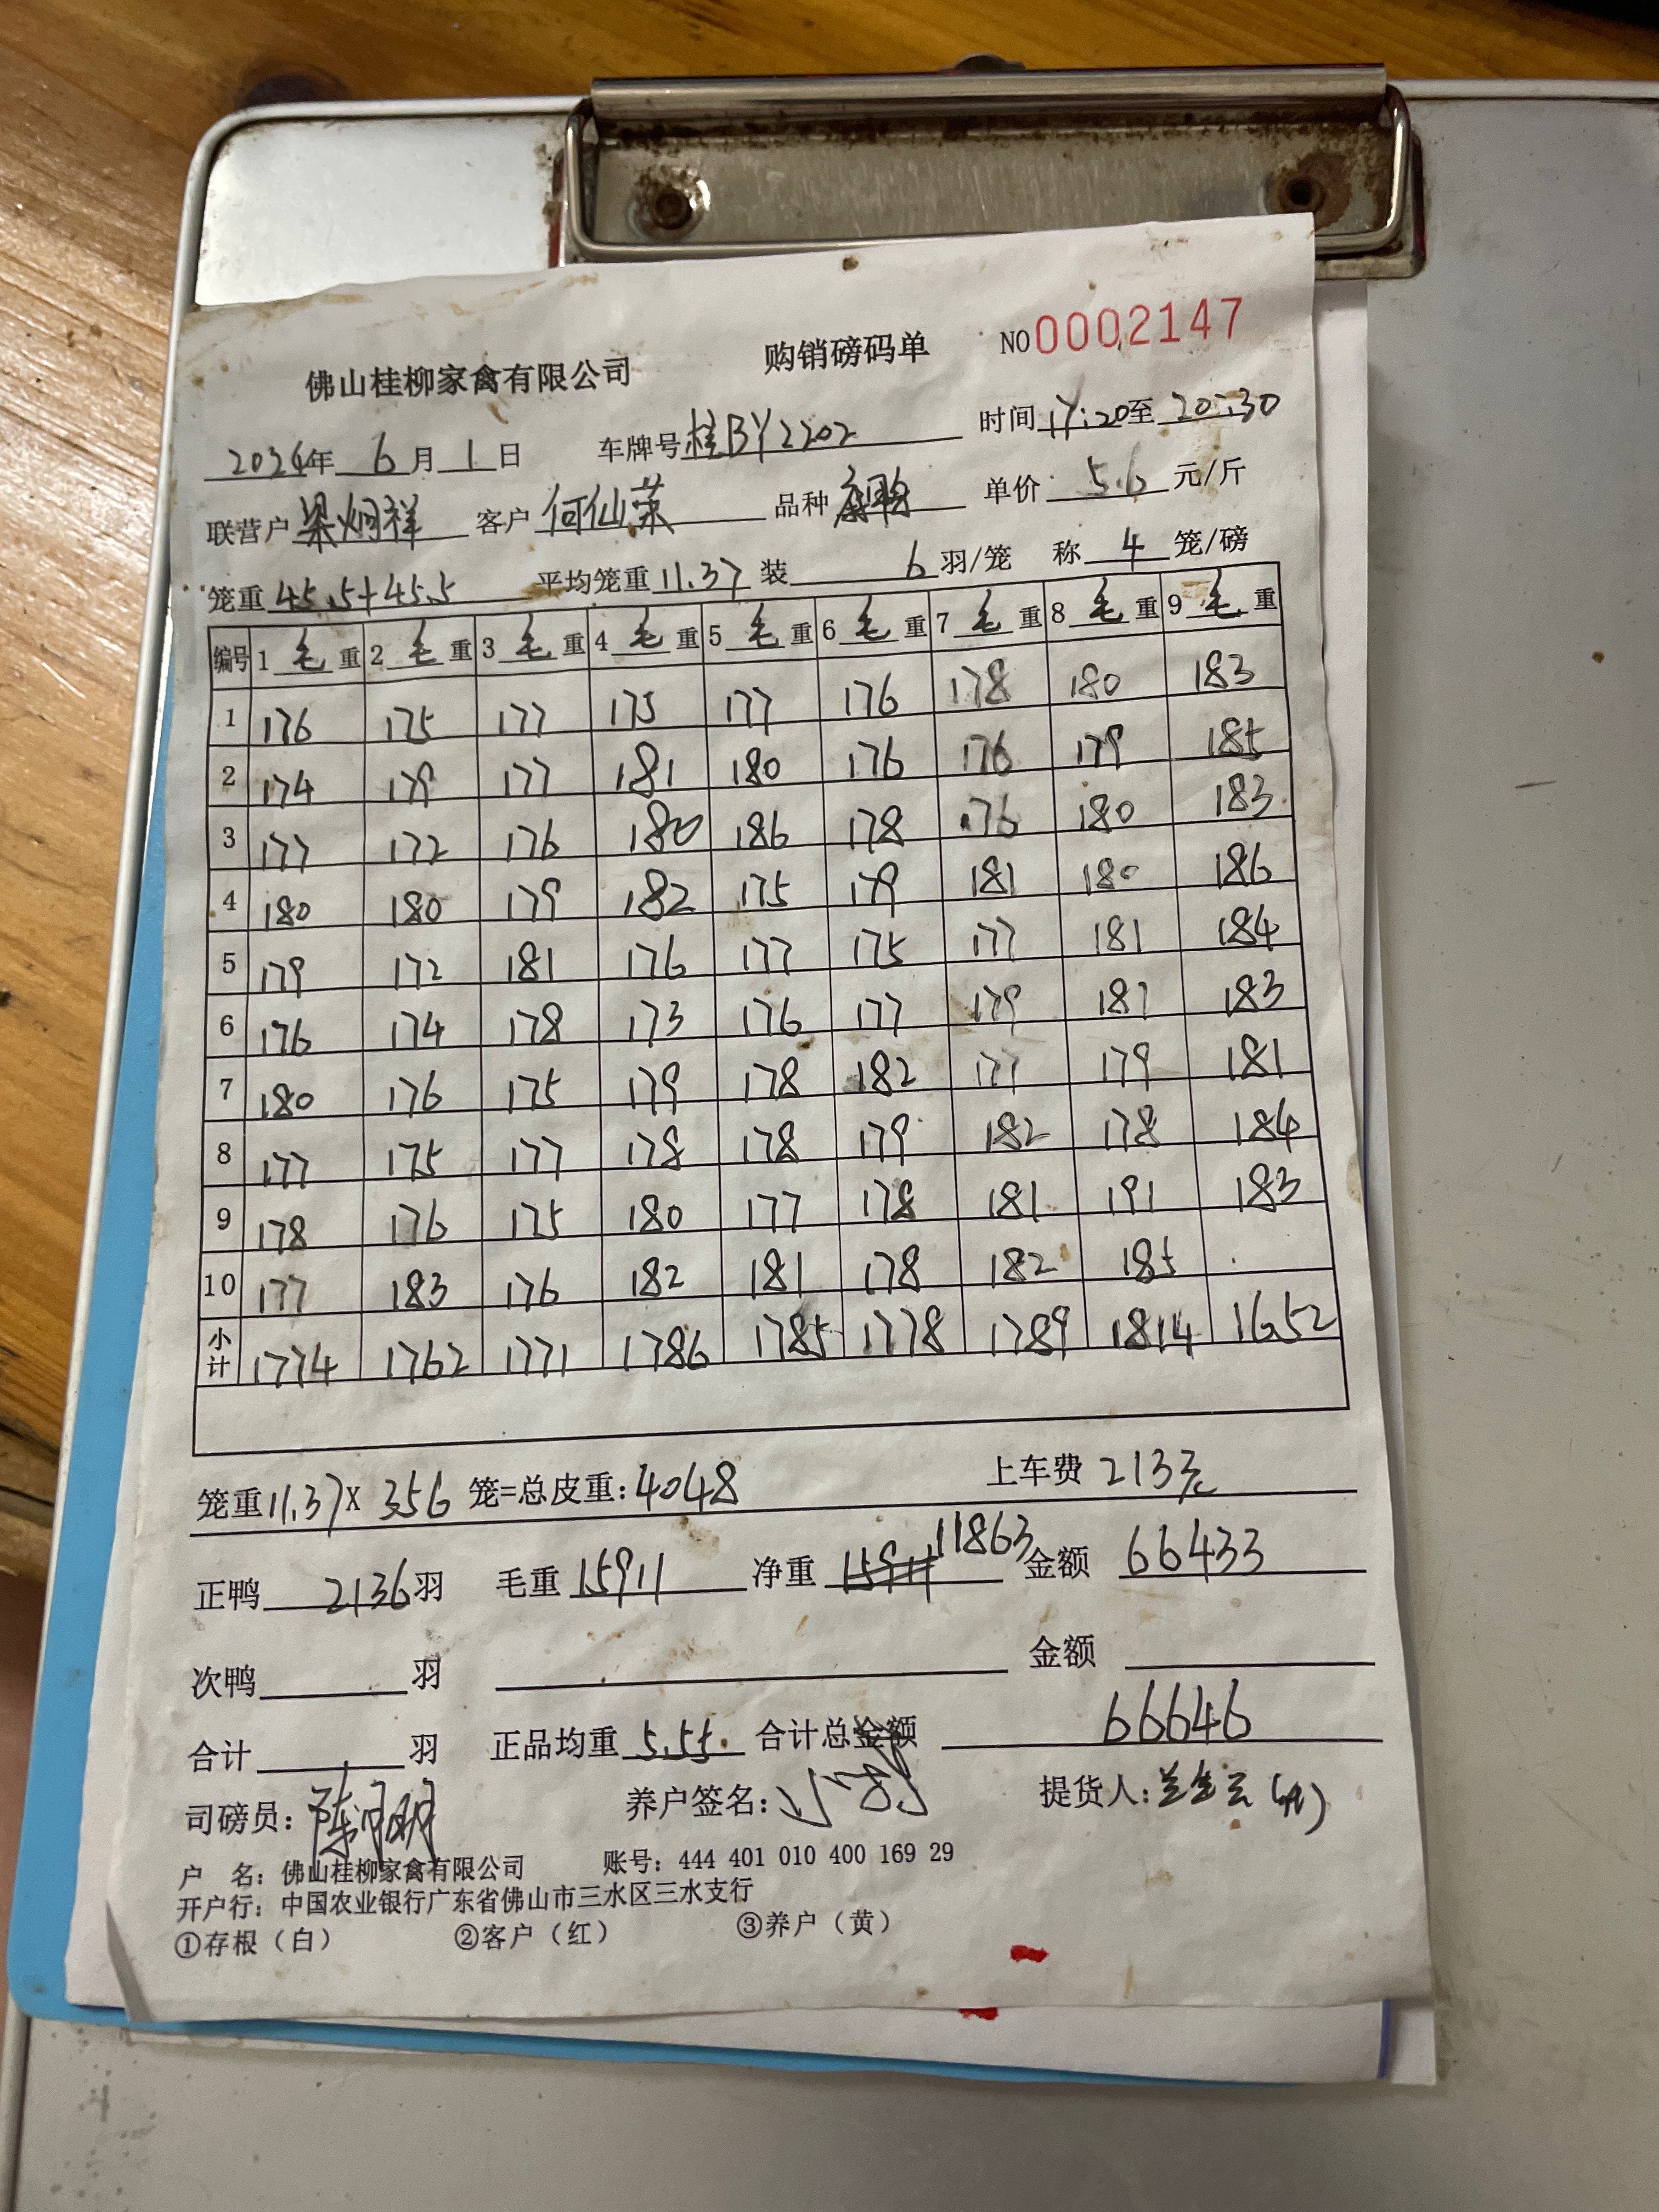 佛山桂柳家禽有限公司 购销磅码单 NO 0002147
2024年 6月 1日 车牌号 桂BY2202 时间 17:20至 20:30
联营户 梁炯祥 客户 何仙荣 品种 单价 5.6 元/斤
笼重 45.5+45.5 平均笼重 11.37 装 6 羽/笼 称 4 笼/磅
编号 1 毛 重 2 毛 重 3 毛 重 4 毛 重 5 毛 重 6 毛 重 7 毛 重 8 毛 重 9 毛 重
1 176 175 177 175 177 176 178 180 183
2 174 179 177 181 180 176 176 179 185
3 177 172 176 180 186 178 176 180 183
4 180 180 179 182 175 179 181 180 186
5 179 172 181 176 177 175 177 181 184
6 176 174 178 173 176 177 179 181 183
7 180 176 175 179 178 182 177 179 181
8 177 175 177 178 178 179 182 178 184
9 178 176 175 180 177 178 181 191 183
10 177 183 176 182 181 178 182 185
小计 1774 1762 1771 1786 1785 1778 1789 1814 1652
笼重 11.37 X 356 笼=总皮重: 4048 上车费 213元
正鸭 2136 羽 毛重 15911 净重 11863 金额 66433
次鸭 羽 金额
合计 羽 正品均重 5.55 合计总金额 66646
司磅员: 养户签名: 提货人:
户 名: 佛山桂柳家禽有限公司 账号: 444 401 010 400 169 29
开户行: 中国农业银行广东省佛山市三水区三水支行
①存根（白） ②客户（红） ③养户（黄）